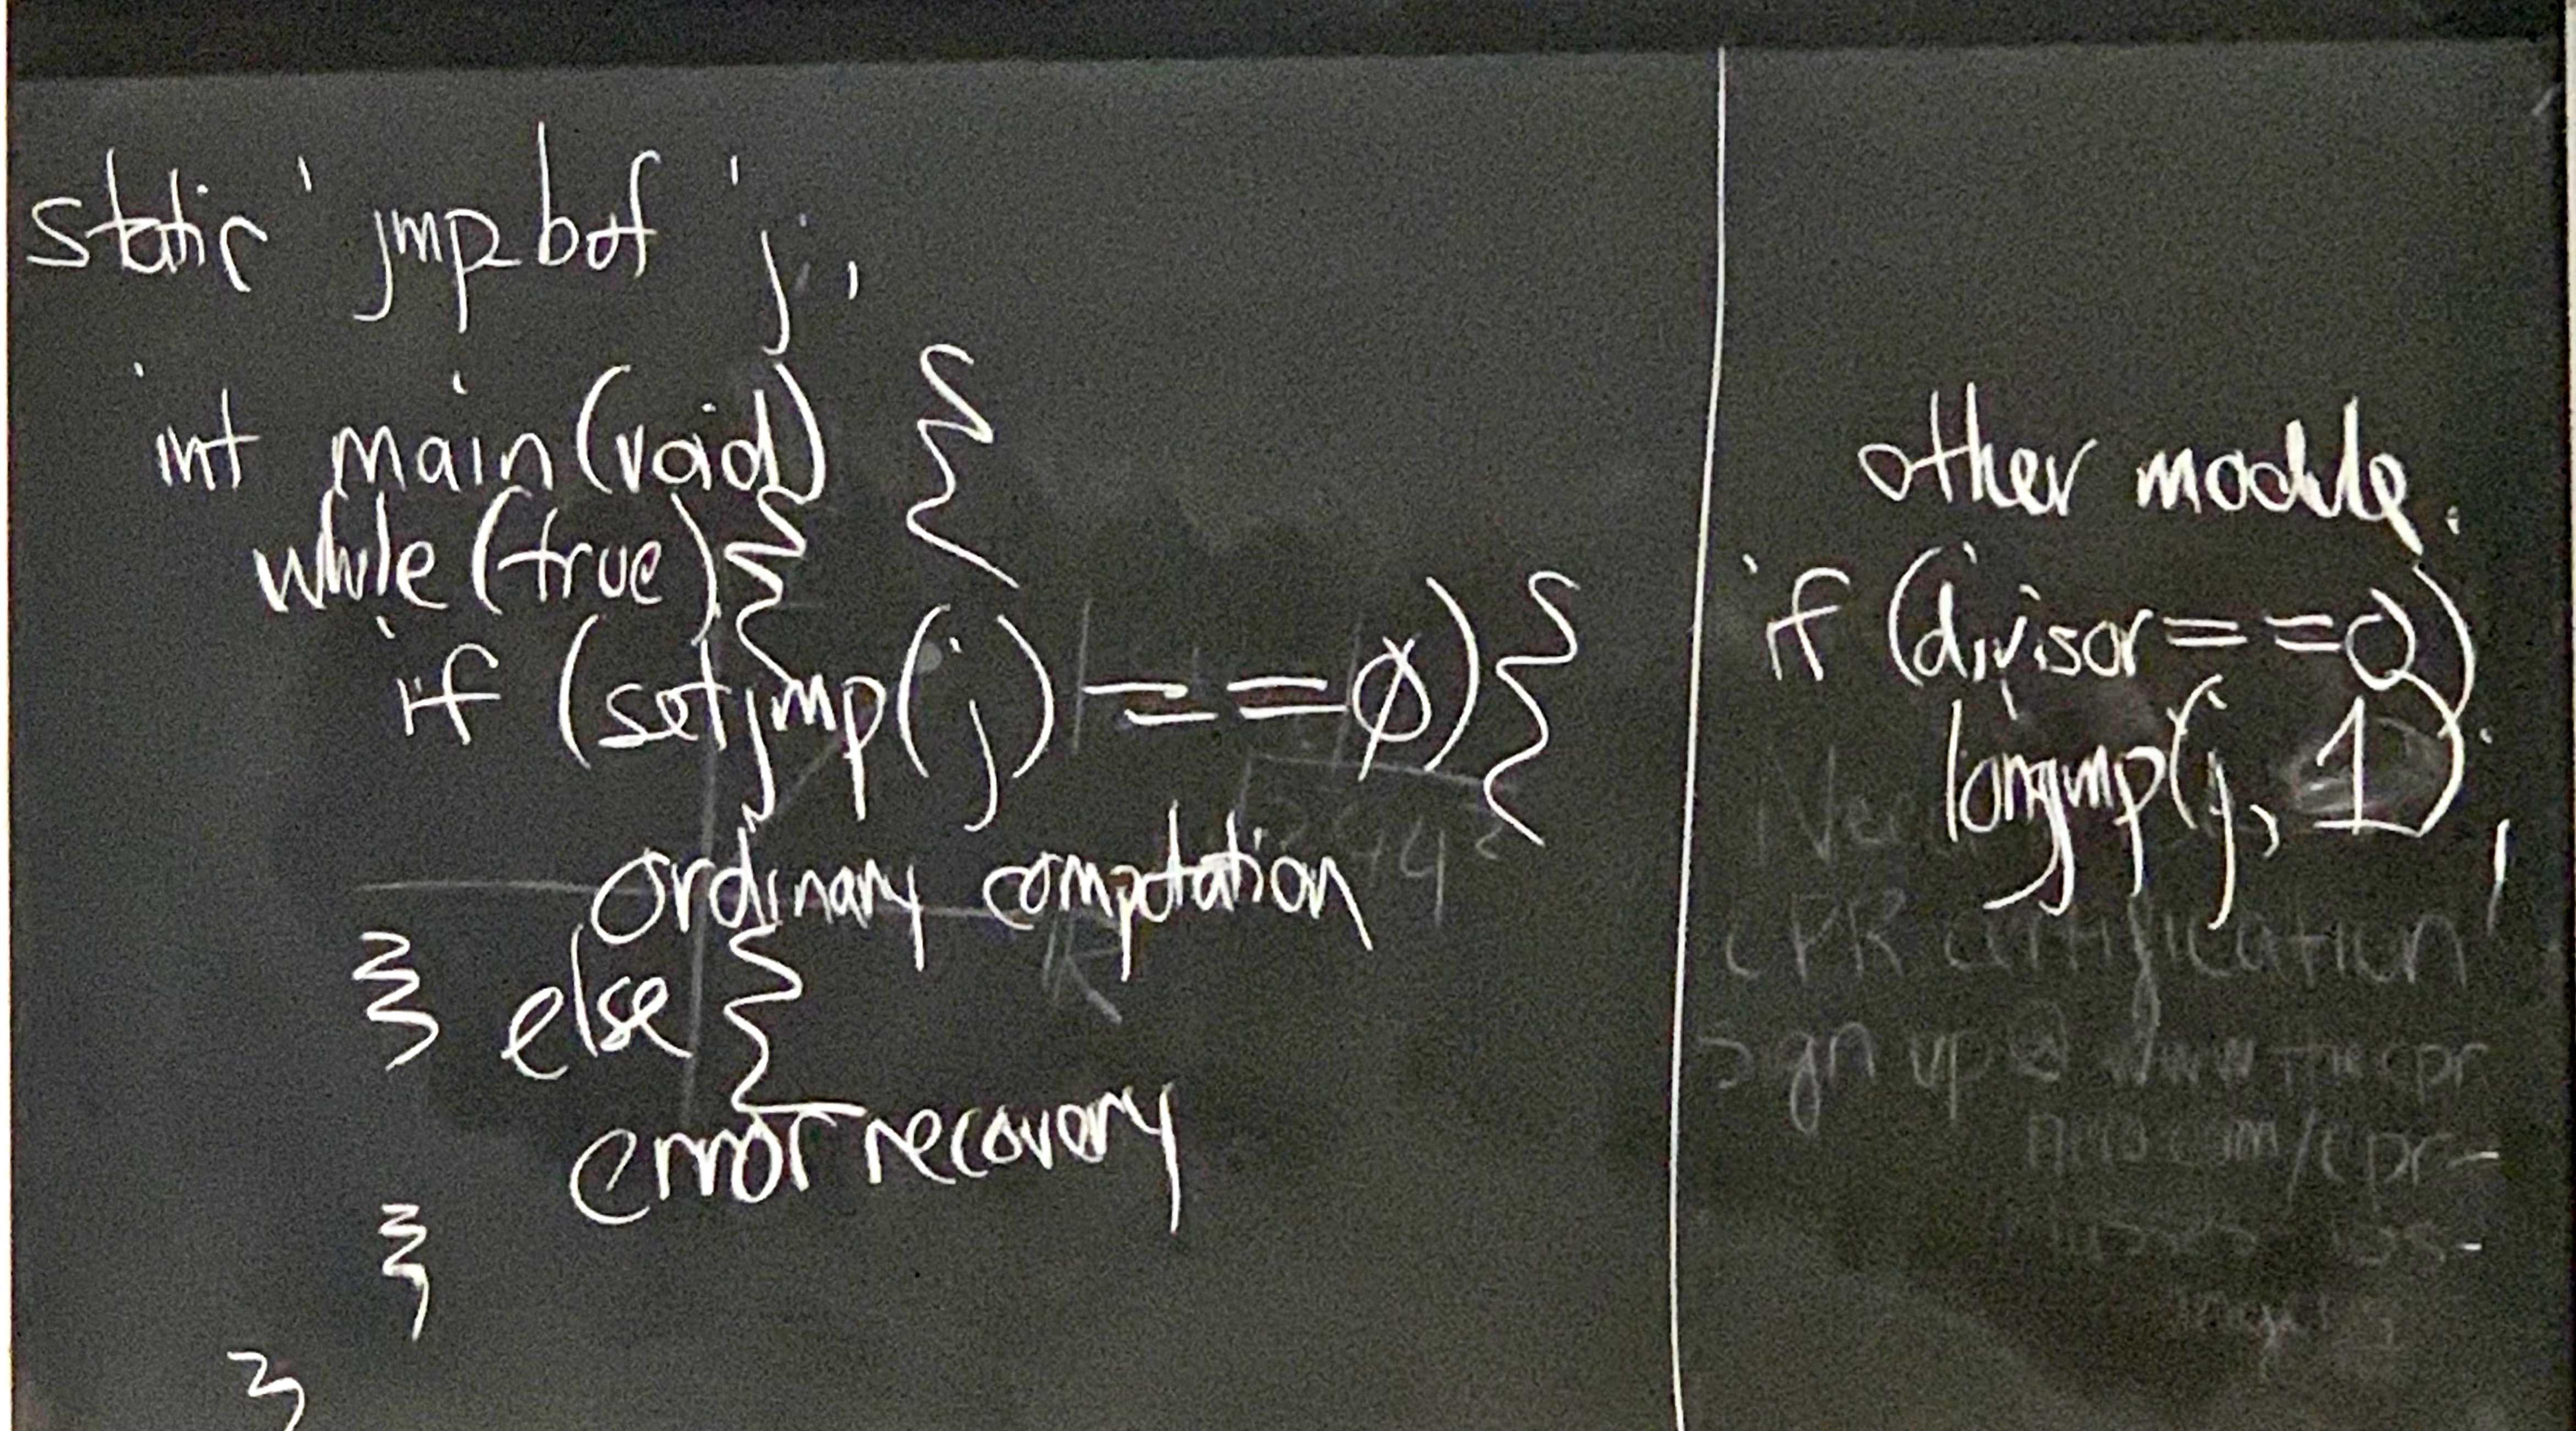 static jmp_buf j;
int main(void) {
while(true){
if (setjmp(j)==0){
ordinary computation
} else {
error recovery
}
}
other module.
if (divisor==0)
longjmp(j, 1);
CPR certification
sign up @ www